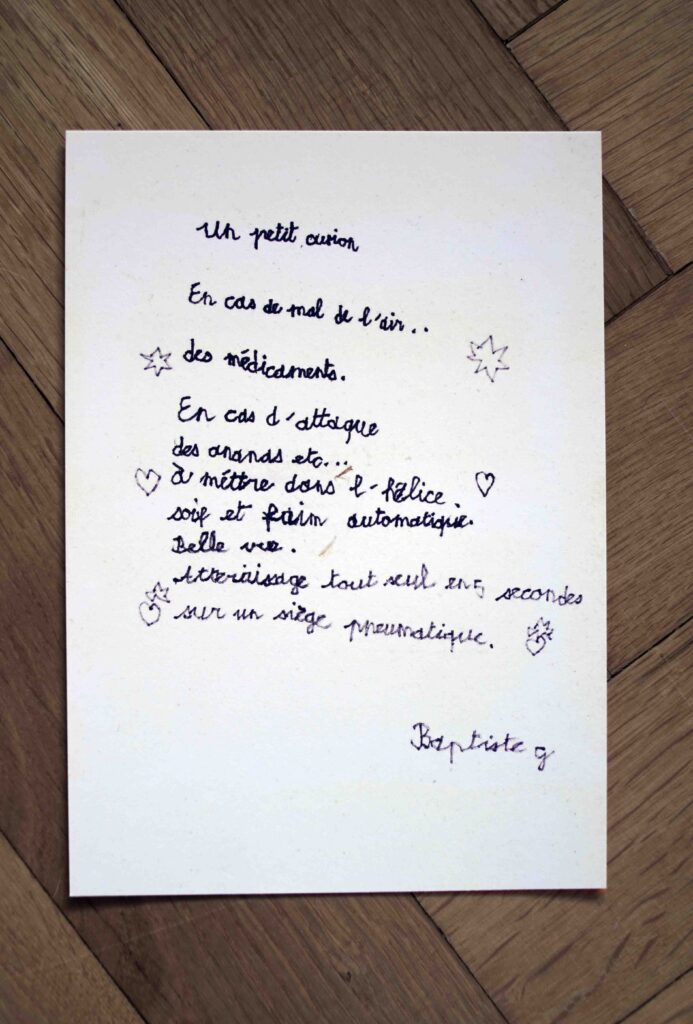 Un petit avion
En cas de mal de l'air..
des médicaments.
En cas d'attaque
des ananas etc...
à méttre dans l'hélice.
soif et faim automatique.
Belle vue.
Atteraisage tout seul en 5 secondes
sur un siège pneumatique.
Baptiste g